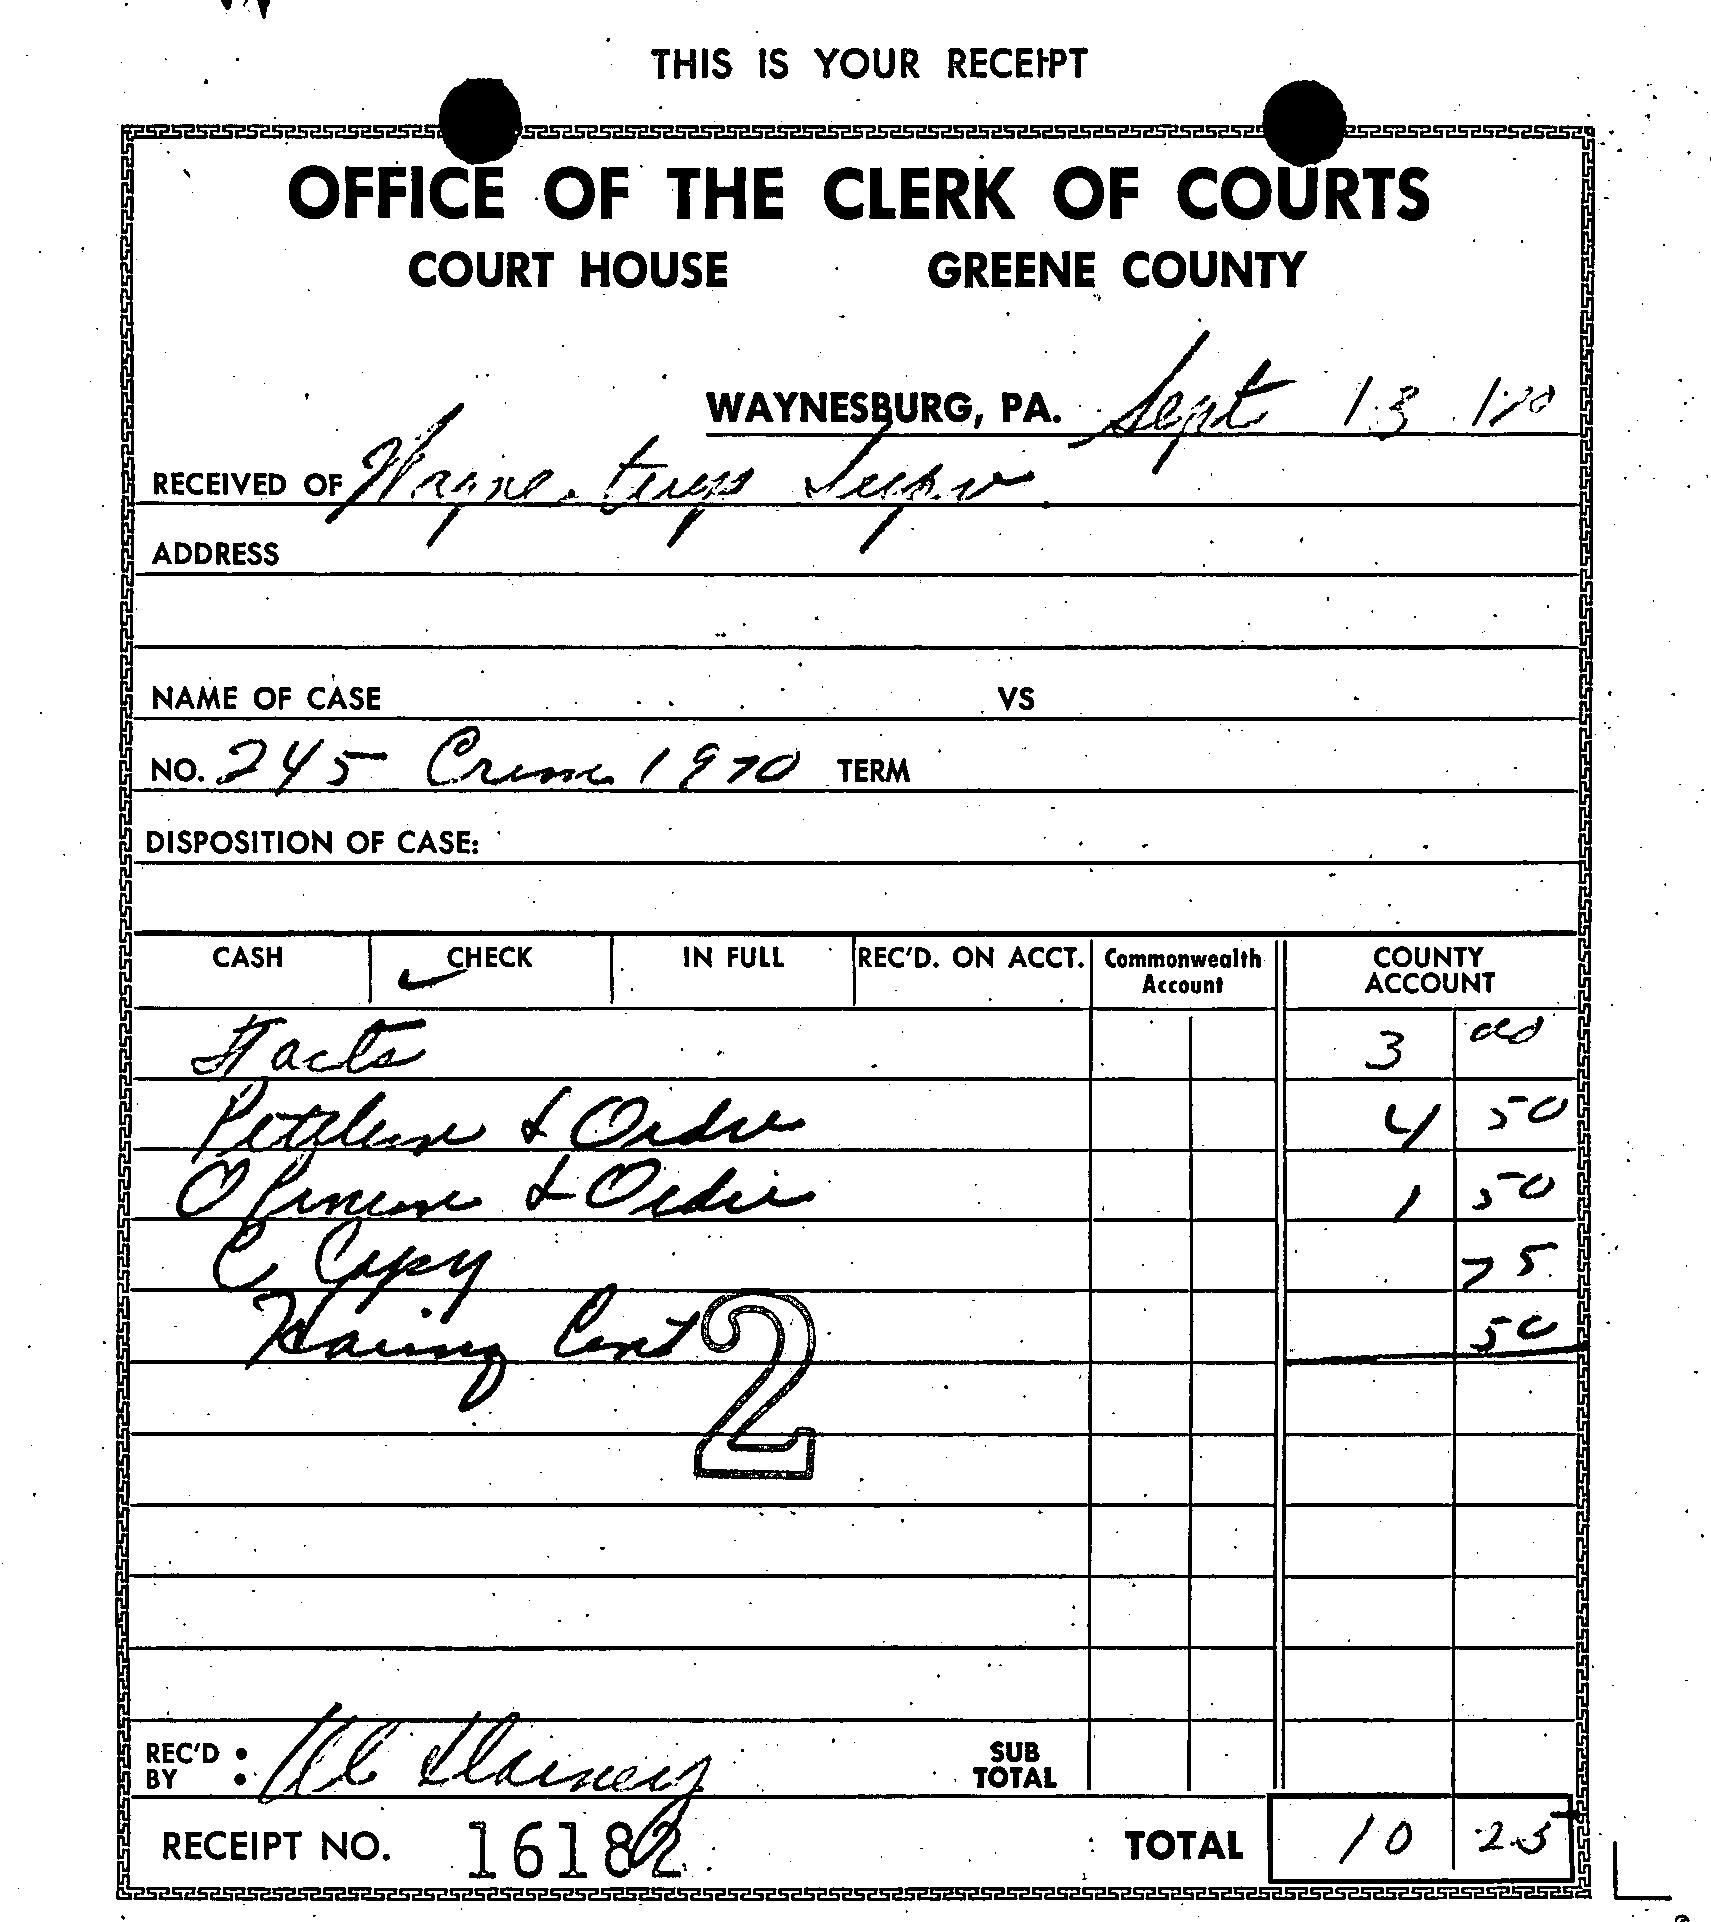 THIS IS YOUR RECEIPT
OFFICE OF THE CLERK OF COURTS
COURT HOUSE GREENE COUNTY
WAYNESBURG, PA. Sept 13
RECEIVED OF Wayne twp Supv.
ADDRESS
NAME OF CASE VS
NO. 245 1970 TERM
DISPOSITION OF CASE:
CASH CHECK IN FULL REC'D. ON ACCT. Commonwealth Account COUNTY ACCOUNT
3 00
& Order 4 50
Opinion & Order 1 50
C Copy 75
50
2
REC'D BY :
SUB TOTAL
RECEIPT NO. 16182 TOTAL 10 25